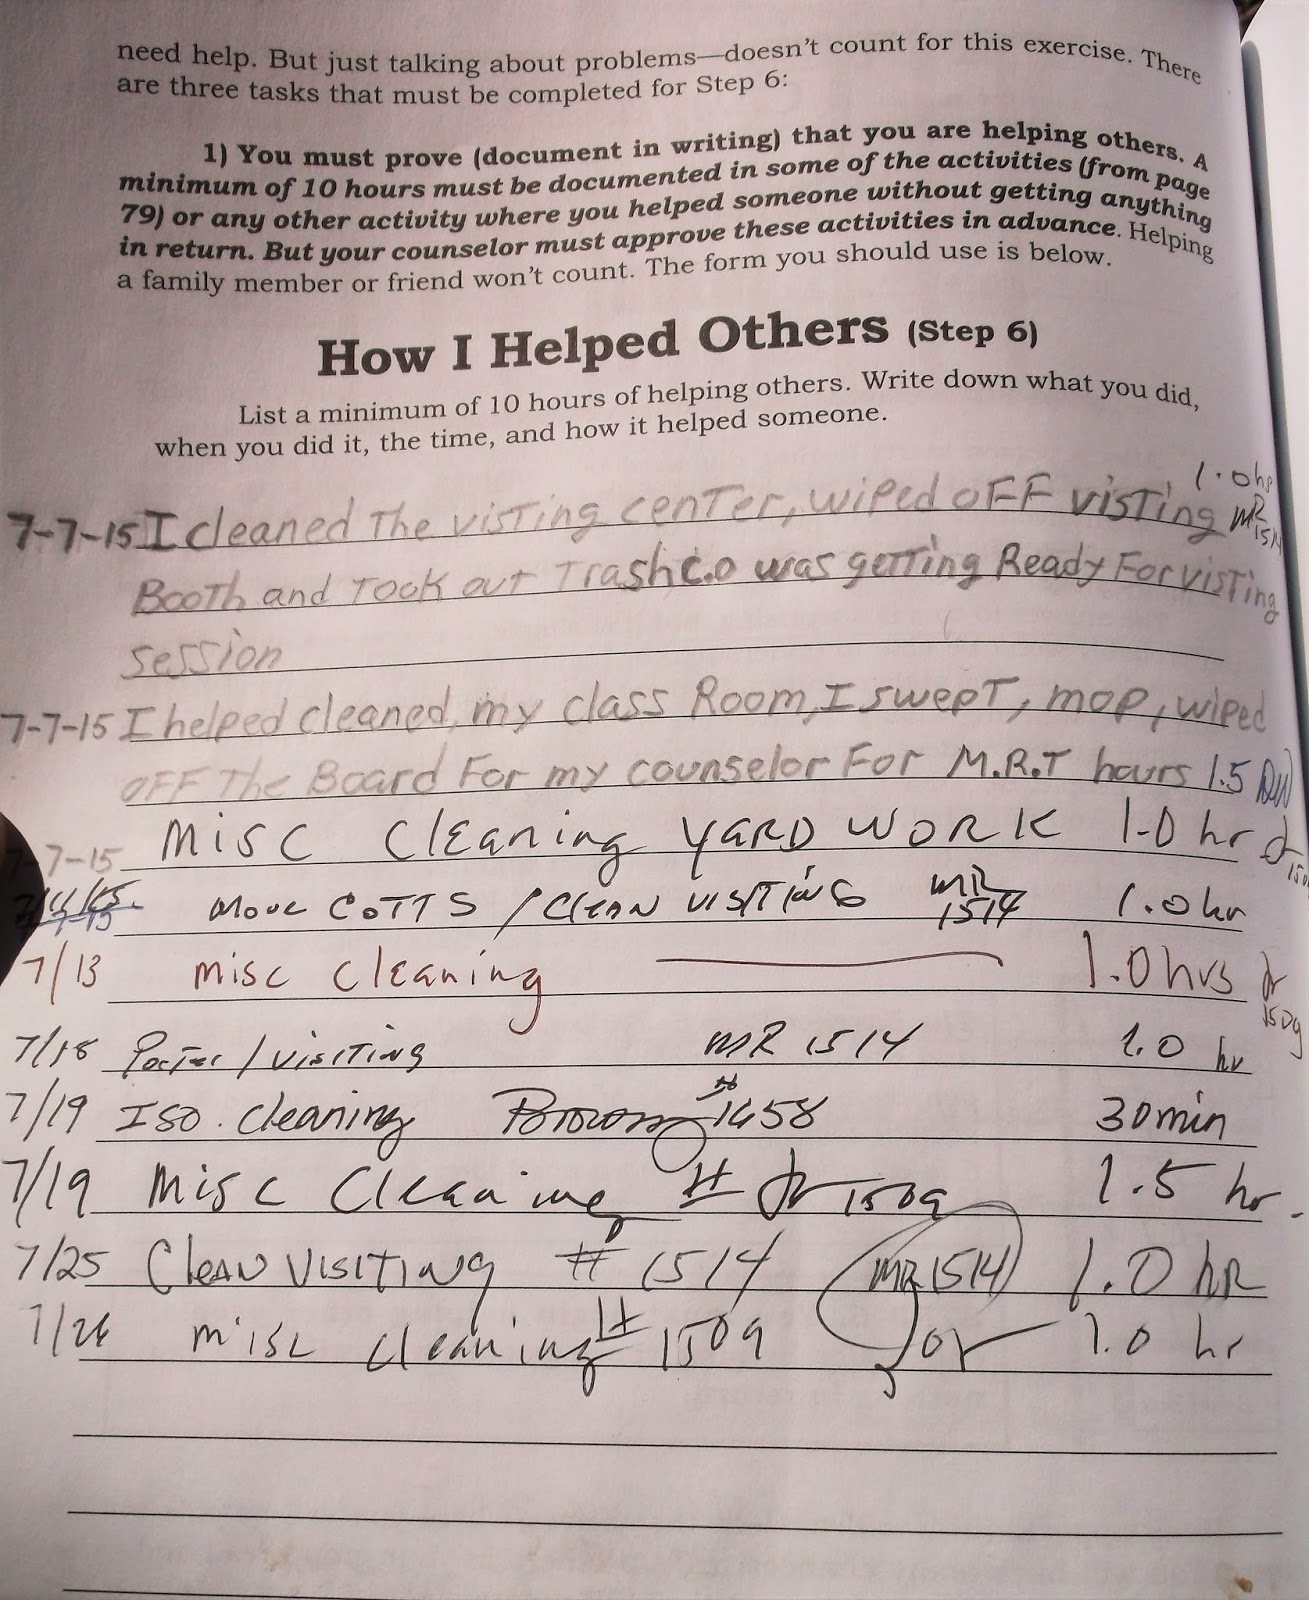 need help. But just talking about problems—doesn't count for this exercise. There
are three tasks that must be completed for Step 6:
1) You must prove (document in writing) that you are helping others. A
minimum of 10 hours must be documented in some of the activities (from page
79) or any other activity where you helped someone without getting anything
in return. But your counselor must approve these activities in advance. Helping
a family member or friend won't count. The form you should use is below.
How I Helped Others (Step 6)
List a minimum of 10 hours of helping others. Write down what you did,
when you did it, the time, and how it helped someone.
1.0 hr
7-7-15 I cleaned The visTing cenTer, wiped oFF visTing MR 1514
BooTh and Took ouT Trash C.O was geTTing Ready For visTing
session
7-7-15 I helped cleaned, my class Room, I swepT, mop, wiped
oFF The Board For my counselor For M.R.T hours 1.5 DW
7-7-15 Misc Cleaning YARD WORK 1.0 hr
Move COTTS / Clean VISITING MR 1514 1.0 hr
7/13 Misc Cleaning 1.0 hrs 1509
7/18 Porter / Visiting MR 1514 1.0 hr
7/19 Iso. Cleaning Brown #1658 30 min
7/19 Misc Cleaning # 1509 1.5 hr.
7/25 Clean Visiting # 1514 MR 1514 1.0 hR
7/26 misc cleaning # 1509 1.0 hr